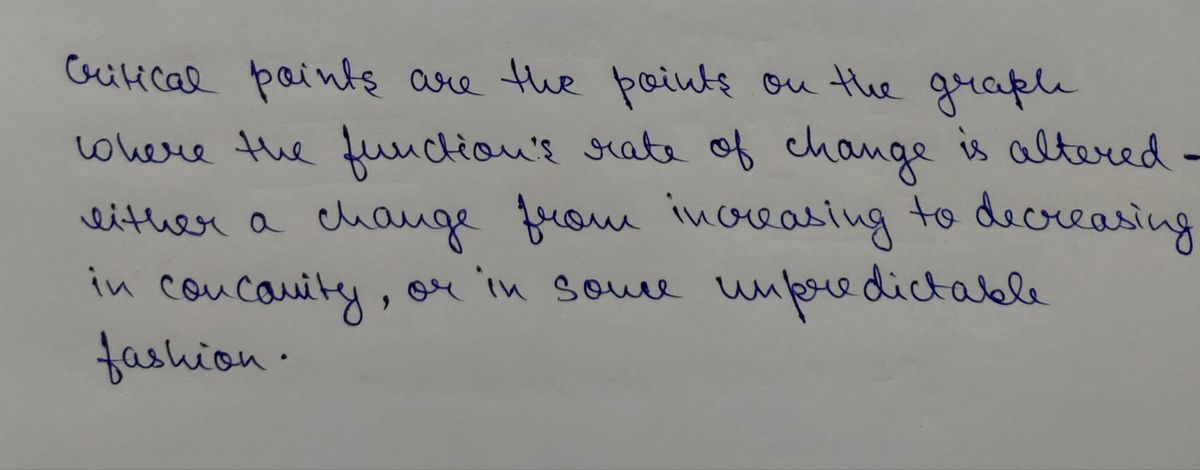 Critical points are the points on the graph
where the function's rate of change is altered -
either a change from increasing to decreasing
in concavity, or in some unpredictable
fashion.